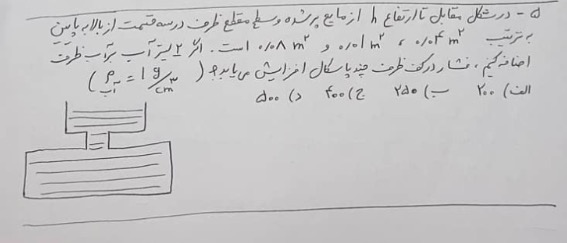 ۵- در شکل مقابل تا ارتفاع h از مایع پر شده و سطح مقطع ظرف در سه قسمت از بالا به پایین
به ترتیب ۰/۰۴ m² ، ۰/۰۱ m² و ۰/۰۸ m² است. اگر ۲ لیتر آب بر آب ظرف
اضافه کنیم، فشار در کف ظرف چند پاسکال افزایش می یابد؟ (ρآب = 1 g/cm³)
الف) ۲۰۰ ب) ۲۵۰ ج) ۴۰۰ د) ۵۰۰